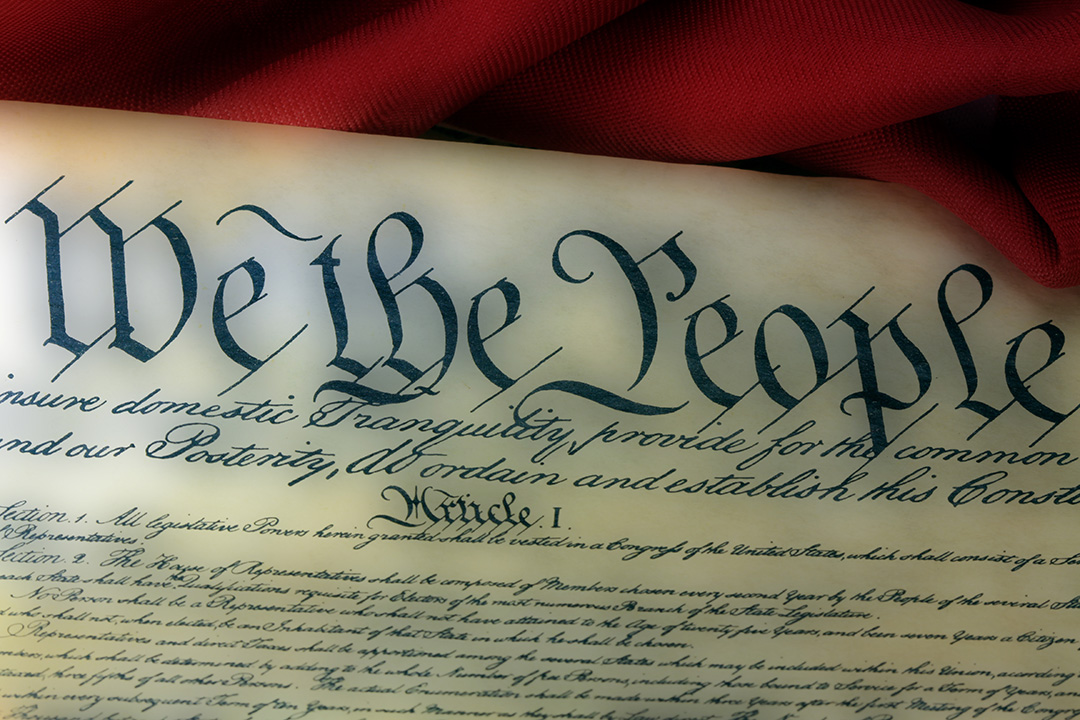 We the People
insure domestic Tranquility, provide for the common
and our Posterity, do ordain and establish this Constit
Article I.
Section. 1. All legislative Powers herein granted shall be vested in a Congress of the United States, which shall consist of a Sen
of Representatives.
Section. 2. The House of Representatives shall be composed of Members chosen every second Year by the People of the several Sta
each State shall have the Qualifications requisite for Electors of the most numerous Branch of the State Legislature.
No Person shall be a Representative who shall not have attained to the Age of twenty five Years, and been seven Years a Citizen
and who shall not, when elected, be an Inhabitant of that State in which he shall be chosen.
Representatives and direct Taxes shall be apportioned among the several States which may be included within this Union, according
Numbers, which shall be determined by adding to the whole Number of free Persons, including those bound to Service for a Term of Years, an
taxed, three fifths of all other Persons. The actual Enumeration shall be made within three Years after the first Meeting of the Congr
within every subsequent Term of ten Years, in such Manner as they shall by Law direct. The